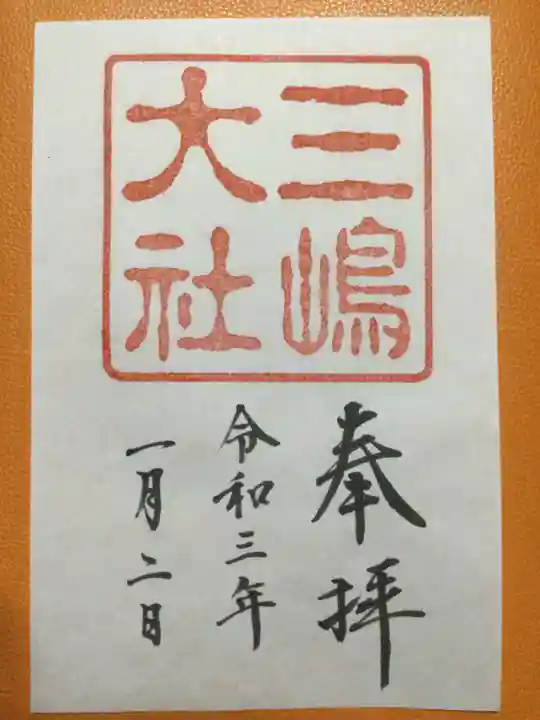 三嶋
大社
奉拝
令和三年
一月二日